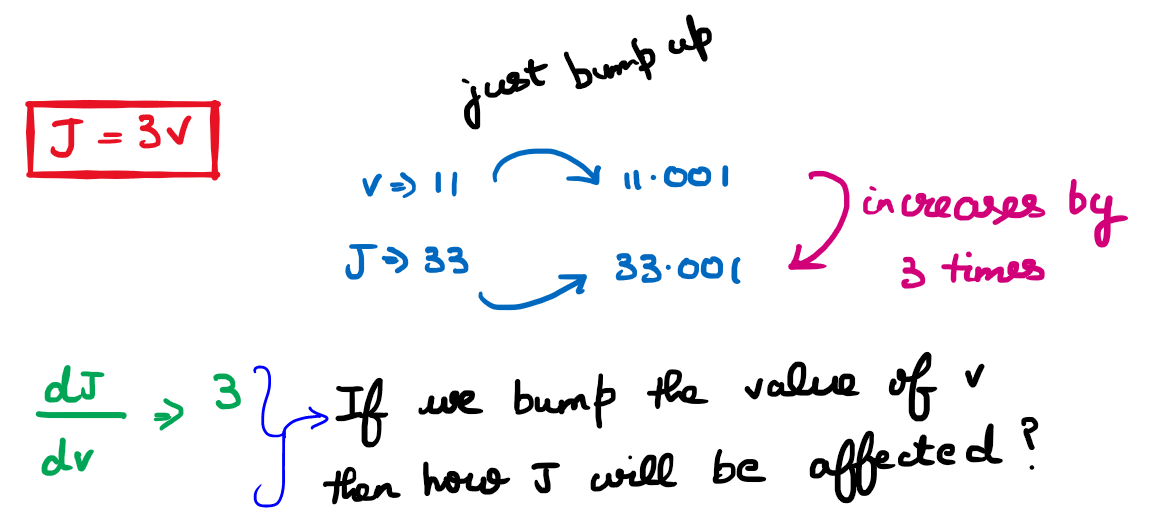 just bump up
J = 3v
v => 11 11.001
J => 33 33.001
increases by
3 times
dJ
dv
=> 3
If we bump the value of v
then how J will be affected?